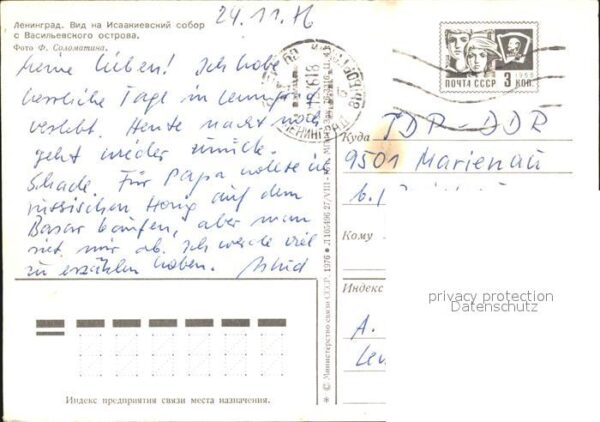 Ленинград. Вид на Исаакиевский собор
с Васильевского острова.
Фото Ф. Соломатина.
24.11.76
Meine Lieben! Ich habe
herrliche Tage in
verlebt. Heute nacht
geht wieder zurück.
Schade. Für Papa wollte ich
russischen Honig auf dem
Basar kaufen, aber man
riet mir ab. Ich werde viel
zu erzählen haben. Astrid
ПОЧТА СССР 3 КОП.
ЛЕНИНГРАД
Куда ГДР-DDR
9501 Marienau
b.
Кому
Индекс
A.
Len
privacy protection
Datenschutz
© Министерство связи СССР, 1976
Индекс предприятия связи места назначения.